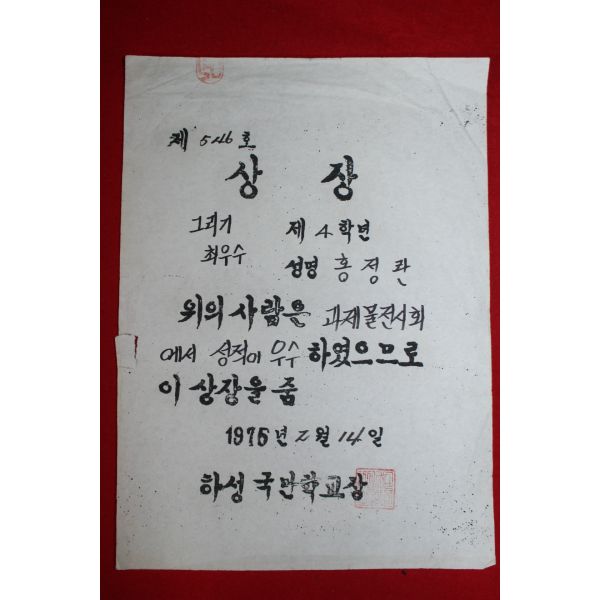 제 546 호
상 장
그리기 제 4 학년
최우수 성명 홍정관
위의 사람은 과제물전시회
에서 성적이 우수 하였으므로
이 상장을 줌
1976년 2월 14일
하성 국민학교장